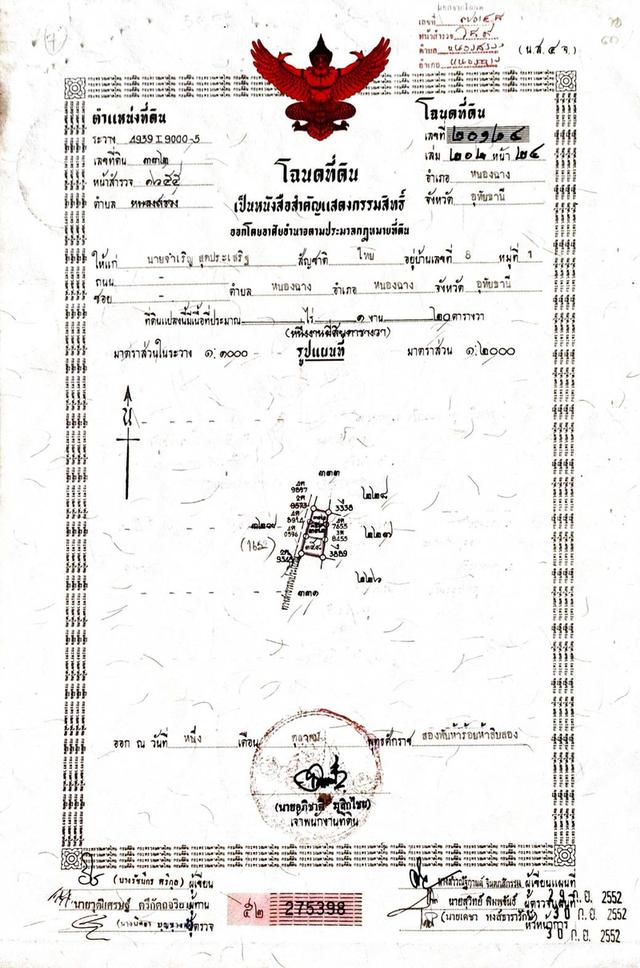 เลขที่
หน้าสำรวจ
ตำบล หนองสรวง
อำเภอ หนองฉาง
(น.ส.๔ จ.)
ตำแหน่งที่ดิน
ระวาง 4939 I 9000-5
เลขที่ดิน ๓๓๒
หน้าสำรวจ
ตำบล หนองสรวง
โฉนดที่ดิน
เลขที่ ๒๐๑๒๔
เล่ม ๒๐๒ หน้า ๒๔
อำเภอ หนองฉาง
จังหวัด อุทัยธานี
โฉนดที่ดิน
เป็นหนังสือสำคัญแสดงกรรมสิทธิ์
ออกโดยอาศัยอำนาจตามประมวลกฎหมายที่ดิน
ให้แก่ นายจำเริญ สุดประเสริฐ สัญชาติ ไทย อยู่บ้านเลขที่ 8 หมู่ที่ 1
ถนน -
ซอย - ตำบล หนองฉาง อำเภอ หนองฉาง จังหวัด อุทัยธานี
ที่ดินแปลงนี้มีเนื้อที่ประมาณ ไร่ ๑ งาน ๒๐ ตารางวา
(หนึ่งงานยี่สิบตารางวา)
มาตราส่วนในระวาง ๑:๑๐๐๐ รูปแผนที่ มาตราส่วน ๑:๒๐๐๐
น
๓๓๓
๒๒๘
3338
7655
8455
๒๒๗
3889
๒๒๖
๓๓๑
ทางสาธารณประโยชน์
ออก ณ วันที่ หนึ่ง เดือน ตุลาคม พุทธศักราช สองพันห้าร้อยห้าสิบสอง
เจ้าพนักงานที่ดิน
ผู้เขียน
นายวุฒิเศรษฐ์ ผู้ทาน
ผู้ตรวจ
๕๒ 275398
ผู้เขียนแผนที่ 29 ก.ย. 2552
นายสุวิทย์ พิมพขันธ์ ผู้ตรวจแผนที่ 30 ก.ย. 2552
(นายเดชา หงส์ธารารักษ์) หัวหน้าการ
30 ก.ย. 2552